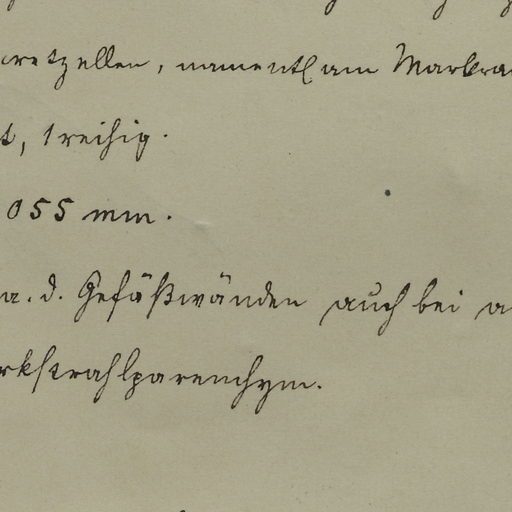 cretzellen, namentl. am Markra
t, 1reihig.
055 mm.
a. d. Gefäßwänden auch bei a
rkstrahlparenchym.